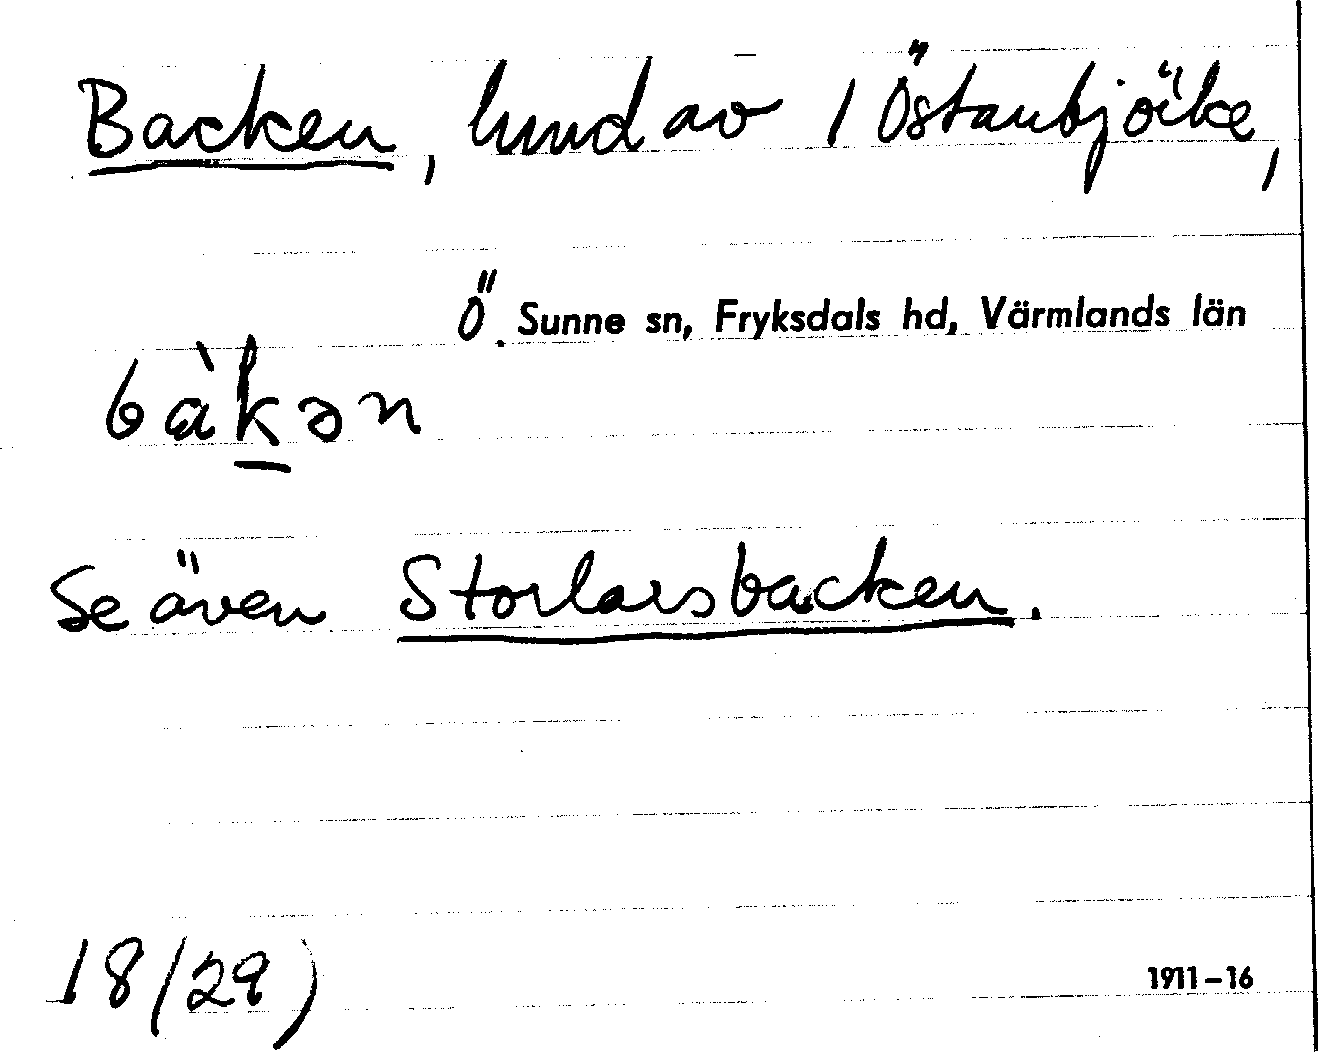 Backen, hmd av 1 Östanbjörke,
Ö. Sunne sn, Fryksdals hd, Värmlands län
bàkən
Se även Storlarsbacken.
18 (29)
1911–16